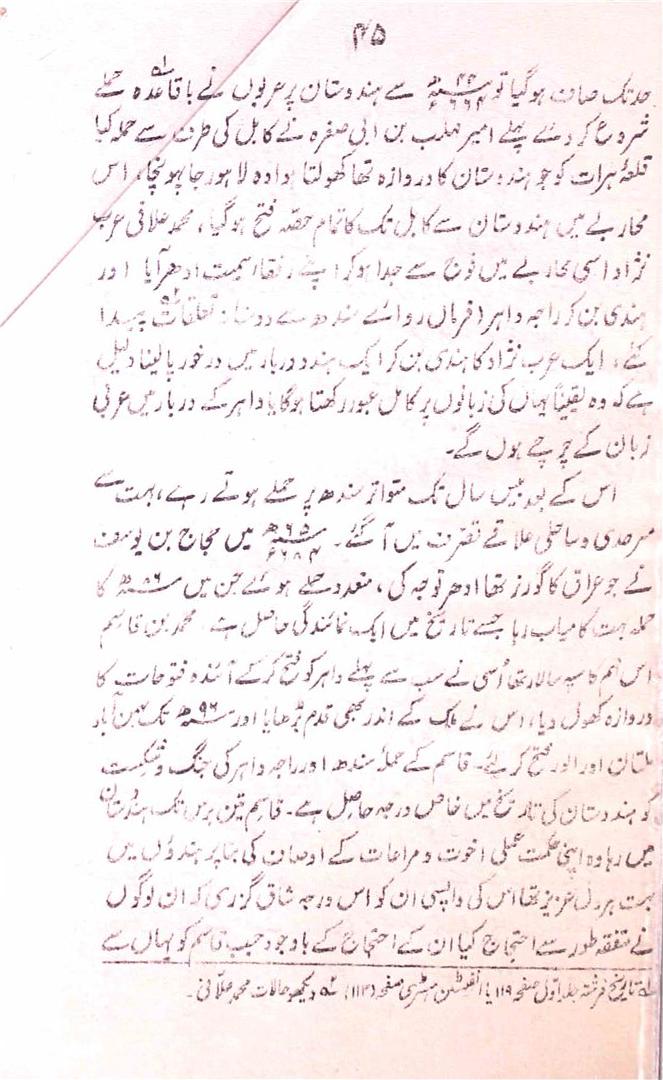 ۴۵
حد تک صاف ہوگیا تو ۴۴ھ ۶۶۴ء سے ہندوستان پر عربوں نے باقاعدہ حملے
شروع کر دئے پہلے امیر مہلب بن ابی صفرہ نے کابل کی طرف سے حملہ کیا
قلعۂ ہرات کو جو ہندوستان کا دروازہ تھا کھولتا ہوا وہ لاہور جا پہونچا، اس
محاربے میں ہندوستان سے کابل تک کا تمام حصہ فتح ہوگیا، محمد علافی عرب
نژاد اسی محاربے میں فوج سے جدا ہوکر اپنے رفقا سمیت ادھر آیا اور
ہندی بن کر راجہ داہر (فرماں روائے سندھ سے دوستانہ تعلقات پیدا
کئے، ایک عرب نژاد کا ہندی بن کر ایک ہندو دربار میں درخور پا لینا دلیل
ہے کہ وہ یقیناً یہاں کی زبانوں پر کامل عبور رکھتا ہوگا یا داہر کے دربار میں عربی
زبان کے چرچے ہوں گے۔
اس کے بعد بیس سال تک متواتر سندھ پر حملے ہوتے رہے، بہت سے
سرحدی و ساحلی علاقے تصرف میں آگئے۔ ۶۵ھ ۶۸۴ء میں حجاج بن یوسف
نے جو عراق کا گورنر تھا ادھر توجہ کی، متعدد حملے ہوئے جن میں ۸۶ھ کا
حملہ بہت کامیاب رہا جسے تاریخ میں ایک نمائندگی حاصل ہے۔ محمد بن قاسم
اس مہم کا سپہ سالار تھا اُسی نے سب سے پہلے داہر کو فتح کرکے آئندہ فتوحات کا
دروازہ کھول دیا، اس نے ملک کے اندر بھی قدم بڑھایا اور ۹۶ھ تک بہمن آباد
ملتان اور الور فتح کر لئے۔ قاسم کے حملۂ سندھ اور راجہ داہر کی جنگ و شکست
کو ہندوستان کی تاریخ میں خاص درجہ حاصل ہے۔ قاسم تین برس تک ہندوستان
میں رہا وہ اپنی حکمت عملی اخوت و مراعات کے اوصاف کی بنا پر ہندوؤں میں
بہت ہر دل عزیز تھا اس کی واپسی ان کو اس درجہ شاق گزری کہ ان لوگوں
نے متفقہ طور سے احتجاج کیا ان کے احتجاج کے باوجود جب قاسم کو یہاں سے
؎۱ تاریخ فرشتہ جلد اول صفحہ ۱۱۹ یا الفنسٹن ہسٹری صفحہ (۱۱۳) ؎۲ دیکھو حالات محمد علافی۔